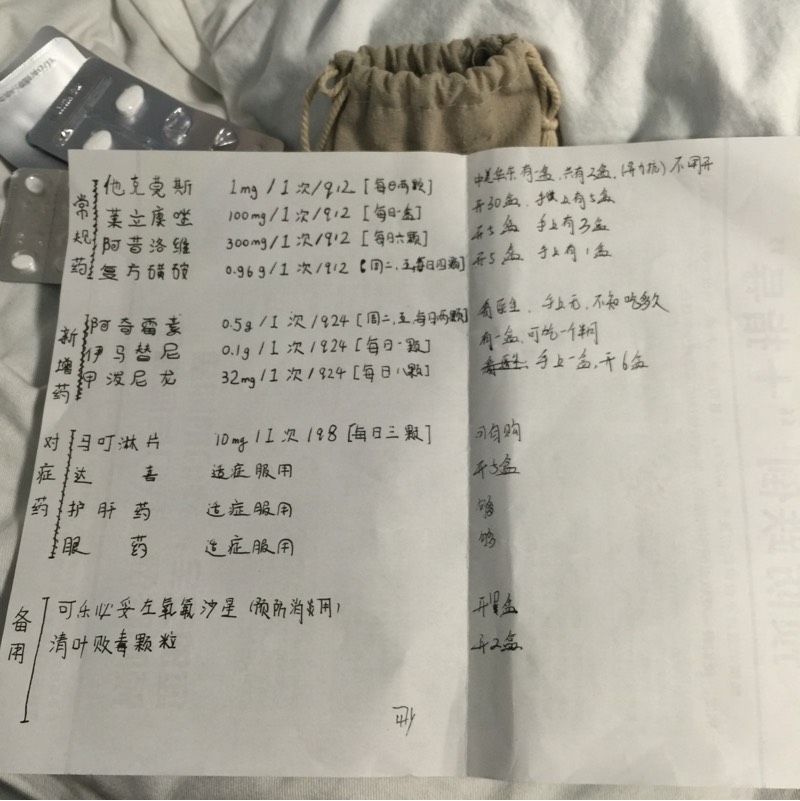 常规药
他克莫斯 1mg/1次/q12 [每日两颗] 有一盒,共有2盒, 不用开
莱立康唑 100mg/1次/q12 [每日一盒] 开30盒, 手上有5盒
阿昔洛维 300mg/1次/q12 [每日六颗] 开5盒 手上有3盒
复方磺胺 0.96g/1次/q12 [周二,五每日四颗] 开5盒 手上有1盒
新增药
阿奇霉素 0.5g/1次/q24 [周二,五,每日两颗] 看医生、手上无,不知吃多久
伊马替尼 0.1g/1次/q24 [每日一颗] 有一盒,可吃一个半月
甲泼尼龙 32mg/1次/q24 [每日八颗] 手上一盒,开6盒
对症药
马叮淋片 10mg/1次/q8 [每日三颗] 可自购
达喜 适症服用 开5盒
护肝药 适症服用 够
眼药 适症服用 够
备用
可乐必妥左氧氟沙星(预防消炎用) 开 盒
清叶败毒颗粒 开2盒